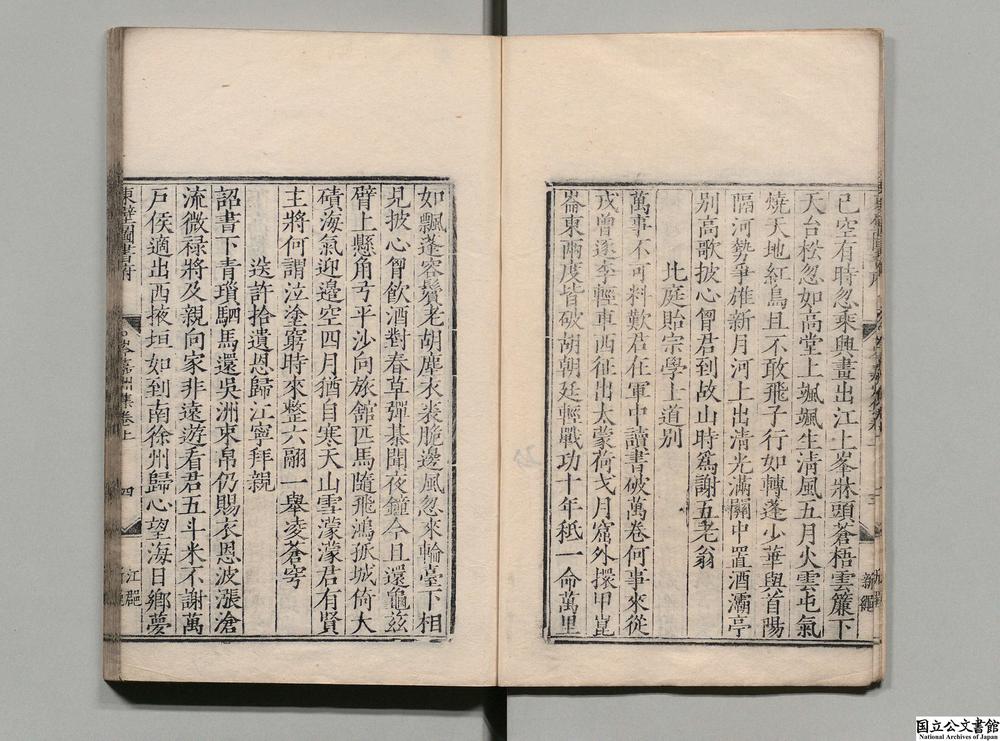 已空有時忽乘興畫出江上峯牀頭蒼梧雲簾下
天台松忽如高堂上颯颯生清風五月火雲屯氣
燒天地紅鳥且不敢飛子行如轉蓬少華與首陽
隔河勢爭雄新月河上出清光滿關中置酒灞亭
別高歌披心胷君到故山時爲謝五老翁
北庭貽宗學士道別
萬事不可料歎君在軍中讀書破萬卷何事來從
戎曾逐李輕車西征出太蒙荷戈月窟外擐甲崑
崙東兩度皆破胡朝廷輕戰功十年秪一命萬里
如飄蓬容鬢老胡塵衣裘脆邊風忽來輪臺下相
見披心胷飲酒對春草彈棊聞夜鐘今且還龜玆
臂上懸角弓平沙向旅館匹馬隨飛鴻孤城倚大
磧海氣迎邊空四月猶自寒天山雪濛濛君有賢
主將何謂泣塗窮時來整六翮一舉凌蒼穹
送許拾遺恩歸江寧拜親
詔書下青瑣駟馬還吳洲束帛仍賜衣恩波漲滄
流微禄將及親向家非遠遊看君五斗米不謝萬
戶侯適出西掖垣如到南徐州歸心望海日鄉夢
東壁圖書府
岑嘉州集卷上
四
江郡
国立公文書館
National Archives of Japan